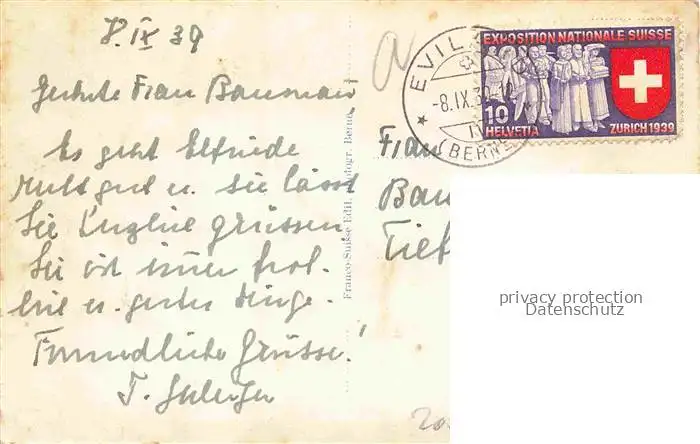 8. IX 39
Geehrte Frau Baumann
Es geht Elfriede
recht gut u. sie lässt
Sie herzlich grüssen
Sie ist immer fröh-
lich u. guter Dinge.
Freundliche Grüsse!
Franco-Suisse Edit. Photogr. Berne
EVIL
-8.IX.39
(BERNE
EXPOSITION NATIONALE SUISSE
10
HELVETIA
ZURICH 1939
Frau
Bau
Tief
privacy protection
Datenschutz